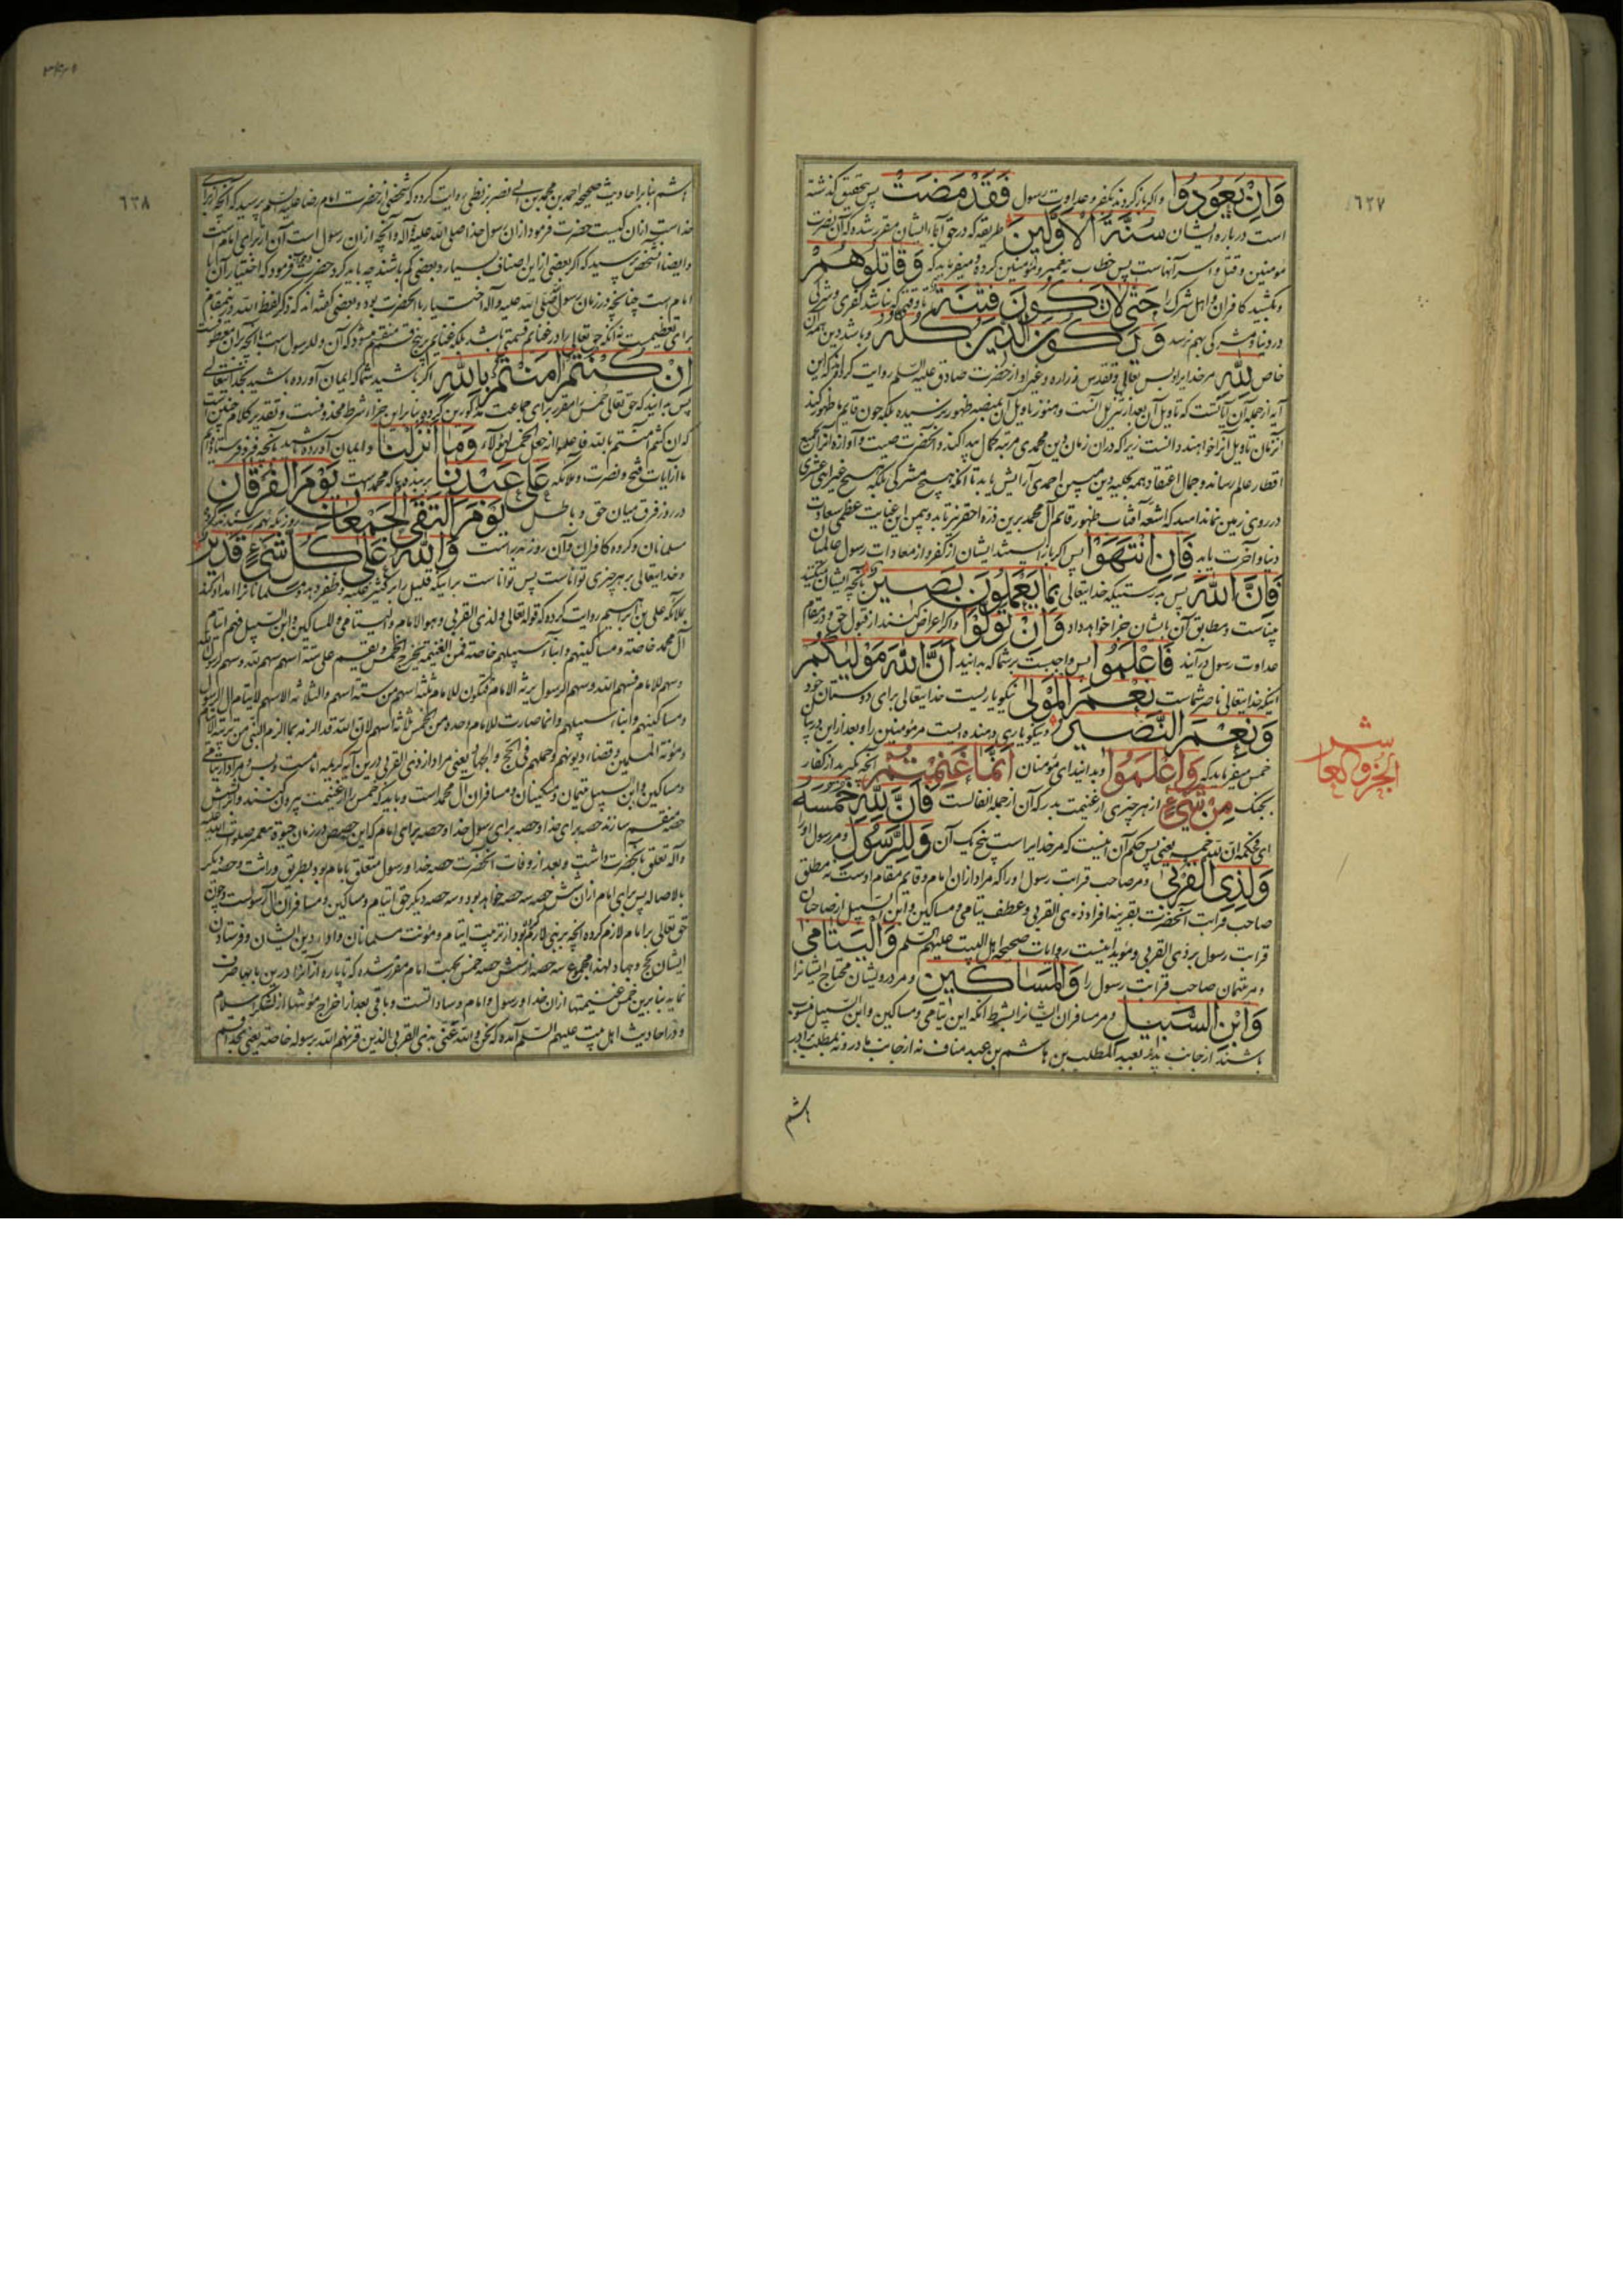 ٦٢٧
وَاِنْ يَعُودُوا و اگر باز گردند بکفر و عداوت رسول فَقَدْ مَضَتْ پس بتحقیق گذشته
است درباره ایشان سُنَّةُ الْاَوَّلِينَ طریقه که در حق آباء ایشان مقرر شده که آن نصرت
مومنین و قتل و اسر آنهاست پس خطاب به پیغمبر و مؤمنین کرده و میفرماید که وَقَاتِلُوهُمْ
و بکشید کافران و اهل شرک را حَتّٰى لَا تَكُونَ فِتْنَةٌ تا وقتی که نباشد کفری و شرکی
در دنیا و شرکی بهم نرسد وَيَكُونَ الدِّينُ كُلُّهُ و باشد دین همه آن
خاص لِلّٰهِ مر خدایرا و بس تعالی و تقدس زراره و غیر او از حضرت صادق علیه السلم روایت کرده‌اند که این
آیه از جمله آن آیاتست که تاویل آن بعد از تنزیل آنست و هنوز تاویل آن بمنصه ظهور نرسیده بلکه چون قایم ما ظهور کند
آنزمان تاویل آنرا خواهند دانست زیرا که در آن زمان دین محمدی مرتبه کمال پیدا کند و آنحضرت صیت و آوازه آنرا بجمیع
اقطار عالم رساند و جمال اعتقاد همه بحلیه دین مبین احمدی آرایش یابد تا آنکه هیچ مشرکی بلکه هیچ غیر اثنی عشری
در روی زمین نماند امید که اشعه آفتاب ظهور قائم آل محمد برین ذره احقر نیز تابد و بیمن این عنایت عظمی سعادت
دنیا و آخرت یابد فَاِنِ انْتَهَوْا پس اگر باز ایستند ایشان از کفر و از معادات رسول عالمیان
فَاِنَّ اللّٰهَ پس بدرستیکه خدایتعالی بِمَا يَعْمَلُونَ بَصِيرٌ بآنچه ایشان میکنند
بیناست و مطابق آن بایشان جزا خواهد داد وَاِنْ تَوَلَّوْا و اگر اعراض کنند از قبول حق و در مقام
عداوت رسول درآیند فَاعْلَمُوا پس واجبست بر شما که بدانید اَنَّ اللّٰهَ مَوْلٰيكُمْ
اینکه خدایتعالی ناصر شماست نِعْمَ الْمَوْلٰى نیکو یاریست خدایتعالی برای دوستان خود
وَنِعْمَ النَّصِيرُ و نیکو یاری دهنده ایست مر مؤمنین را و بعد از این در باب
خمس میفرماید که وَاعْلَمُوا و بدانید ای مؤمنان اَنَّمَا غَنِمْتُمْ آنچه بگیرید از کفار
بجنک مِنْ شَيْءٍ از هر چیزی از غنیمت بدر که آن از جمله انفالست فَاَنَّ لِلّٰهِ خُمُسَهُ
ای فحکمه ان لله خمسه یعنی پس حکم آن اینست که مر خدایراست پنج یک آن وَلِلرَّسُولِ و مر رسول اورا
وَلِذِى الْقُرْبٰى و مر صاحب قرابت رسول اورا که مراد از آن امام و قایم مقام اوست نه مطلق
صاحب قرابت آنحضرت بقرینه افراد ذوی القربی و عطف یتامی و مساکین و ابن السبیل از صاحبان
قرابت رسول بر ذی القربی و مؤید اینست روایات صحیحه اهل البیت علیهم السلم وَالْيَتَامٰى
و مر یتیمان صاحب قرابت رسول را وَالْمَسَاكِينِ و مر درویشان محتاج ایشانرا
وَابْنِ السَّبِيلِ و مر مسافران ایشانرا بشرط آنکه این یتامی و مساکین و ابن السبیل منسوب
باشند از جانب پدر بعبد المطلب بن هاشم بن عبد مناف نه از جانب مادر و نه بمطلب برادر
هاشم
الجزو العاشر
٦٢٨
هاشم بنا بر احادیث صحیحه احمد بن محمد بن ابی نصر بزنطی روایت کرده که شخصی از حضرت امام رضا علیه السلم پرسید که آنچه از برای
خداست از آن کیست حضرت فرمود از آن رسول خدا صلی الله علیه و آله و آنچه از آن رسول است آن از برای امام است
و ایضا آنشخص پرسید که اگر بعضی از این اصناف بسیار و بعضی کم باشند چه باید کرد حضرت فرمود که اختیار آن با
امام است چنانچه در زمان رسول صلی الله علیه و آله اختیار با آنحضرت بود و بعضی گفته اند که ذکر لفظ الله در ینمقام
برای تعظیمست نه آنکه حق تعالی را در غنایم قسمتی باشد بلکه غنایم بر پنج قسم منقسم میشود
اِنْ كُنْتُمْ اٰمَنْتُمْ بِاللّٰهِ اگر باشید شما که ایمان آورده باشید بخدایتعالی
پس بدانید که حق تعالی خمس را مقرر برای جماعت مذکورین کرده بنا براین جزاء شرط محذوفست و تقدیر کلام چنین است
که ان کنتم آمنتم بالله فاعلموا انه جعل الخمس لهؤلاء وَمَا اَنْزَلْنَا و ایمان آورده باشید بآنچه فرو فرستادیم
ما از آیات فتح و نصرت و ملائکه عَلٰى عَبْدِنَا بر بنده ما که محمد است يَوْمَ الْفُرْقَانِ
در روز فرق میان حق و باطل يَوْمَ الْتَقَى الْجَمْعَانِ روزیکه بهم رسیدند گروه
مسلمانان و گروه کافران و آن روز بدر است وَاللّٰهُ عَلٰى كُلِّ شَيْءٍ قَدِيرٌ
و خدایتعالی بر هر چیزی تواناست پس تواناست براینکه قلیل را بر کثیر غلبه و ظفر دهد و مسلمانانرا امداد کند
بملائکه علی بن ابراهیم روایت کرده که قوله تعالی ولذی القربی وهو الامام والیتامی والمساکین وابن السبیل فهم ایتام
آل محمد خاصة ومساکینهم وابناء سبیلهم خاصة فمن الغنیمة یخرج الخمس ویقسم علی ستة اسهم سهم لله وسهم لرسول الله
وسهم للامام فسهم الله وسهم الرسول یرثه الامام فتکون للامام ثلثة اسهم من ستة اسهم والثلاثة الاسهم لایتام آل الرسول
ومساکینهم وابناء سبیلهم وانما صارت للامام وحده من الخمس ثلاثة اسهم لان الله قد الزمه بما الزم النبی من تربیة الایتام
ومؤنة المسلمین وقضاء دیونهم وحملهم فی الحج والجهاد یعنی مراد از ذی القربی در این آیه کریمه امامست و بس و مراد از یتامی
و مساکین و ابن السبیل یتیمان و مسکینان و مسافران آل محمد است و باید که خمس را از غنیمت بیرون کنند و آنرا بشش
حصه منقسم سازند حصه برای خدا و حصه برای رسول خدا و حصه برای امام که این حصص در زمان حیوة پیغمبر صلوات الله علیه
و آله تعلق بآنحضرت داشت و بعد از وفات آنحضرت حصه خدا و رسول متعلق بامام بود بطریق وراثت و حصه دیگر
بالاصاله پس برای امام ازان شش حصه سه حصه خواهد بود و سه حصه دیگر حق ایتام و مساکین و مسافران آل رسولست و چون
حق تعالی بر امام لازم کرده آنچه بر نبی لازم بود از تربیت ایتام و مؤنت مسلمانان و ادای دین ایشان و فرستادن
ایشان بحج و جهاد لهذا مجموع سه حصه از شش حصه خمس بجهت امام مقرر شده که تا پاره از آنرا در این بابها صرف
نماید بنابرین خمس غنیمتها از آن خدا و رسول و امام و ساداتست و باقی بعد از اخراج مؤنتها از لشکر اسلام
و در احادیث اهل بیت علیهم السلم آمده که نحن والله عنی بذی القربی الذین قرنهم الله برسوله خاصة یعنی بخدا قسم